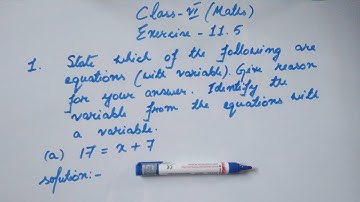 Class-VI (Maths)
Exercise - 11.5
1. State which of the following are
equations (with variable). Give reason
for your answer. Identify the
variable from the equations with
a variable.
(a) 17 = x + 7
Solution:-